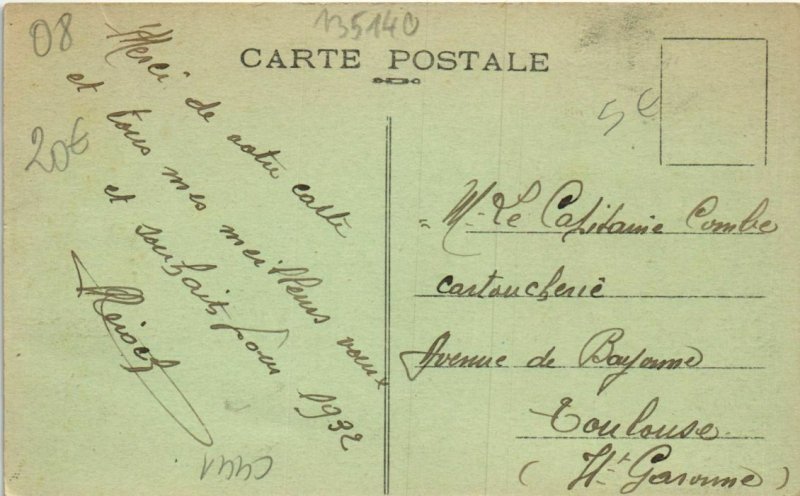 135140
08
20€
5€
CARTE POSTALE
Merci de votre carte
et tous mes meilleurs voeux
et souhaits pour 1932
M. Le Capitaine Combe
Cartoucherie
Avenue de Bayonne
Toulouse
(Hte Garonne)